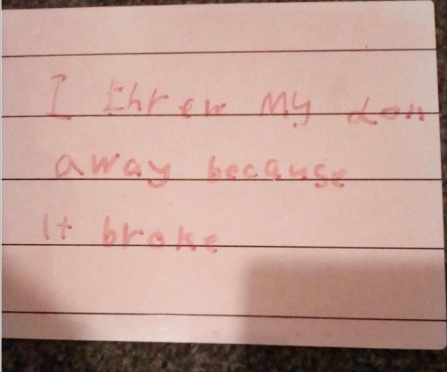 I threw My don
away because
It broke